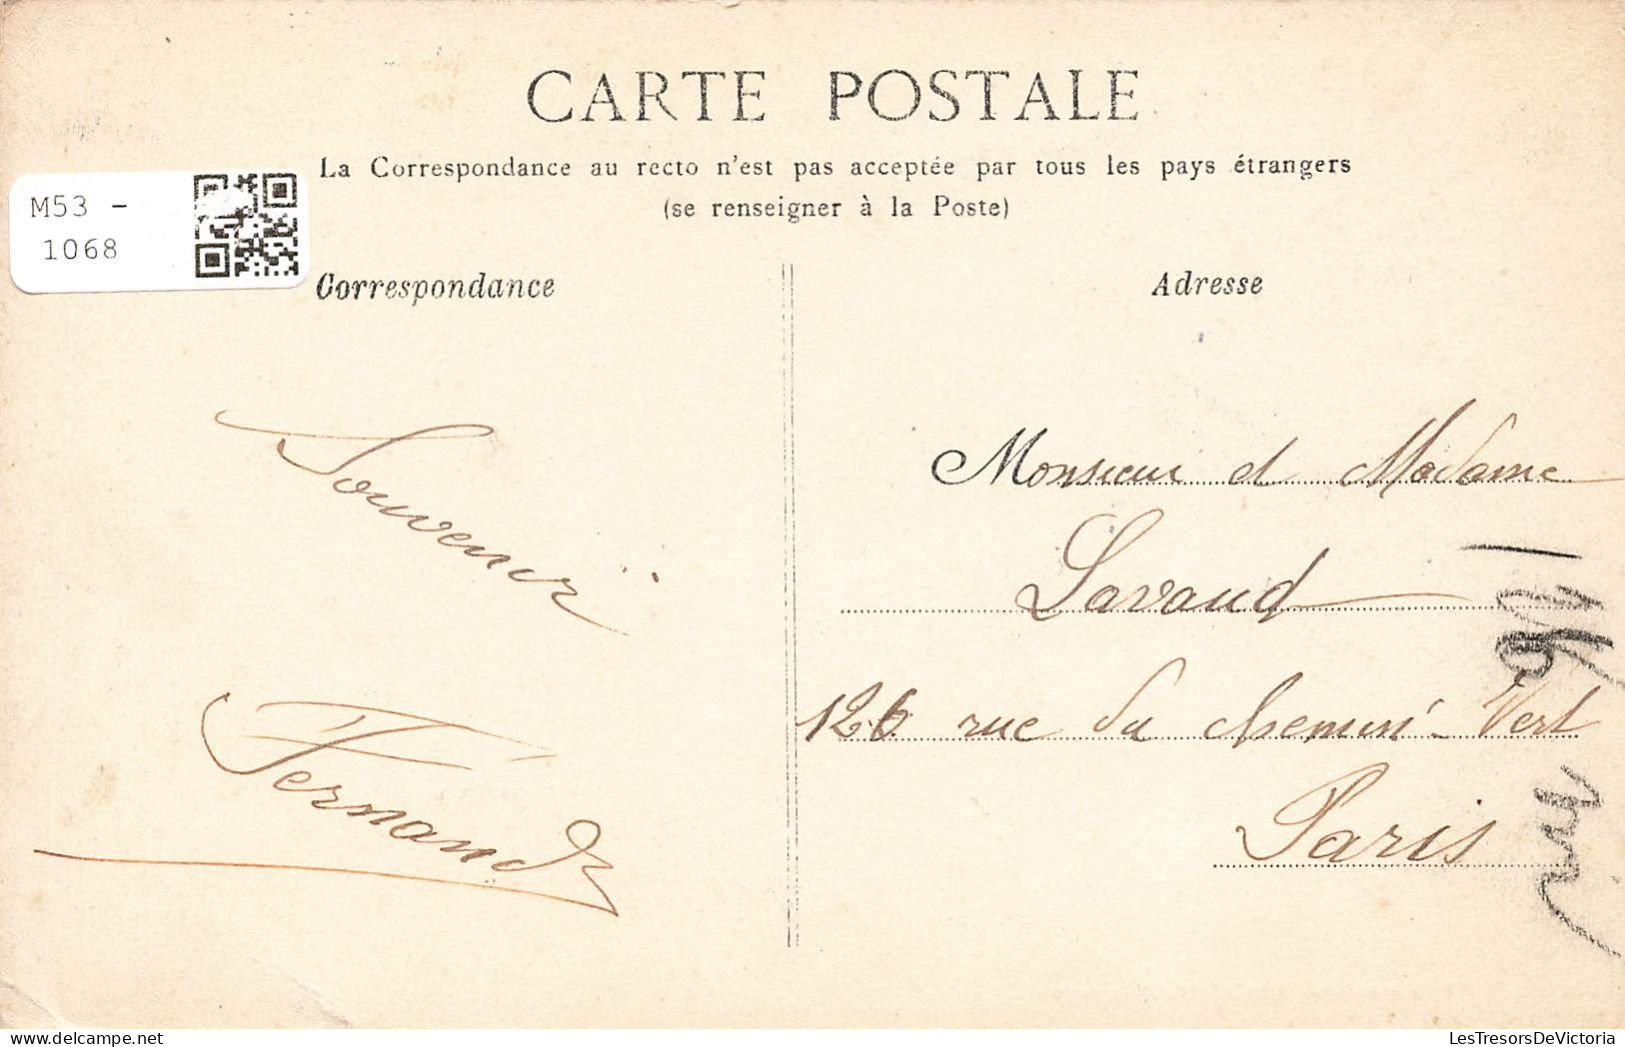 CARTE POSTALE
La Correspondance au recto n'est pas acceptée par tous les pays étrangers
(se renseigner à la Poste)
M53 -
1068
Correspondance
Adresse
Souvenir
Fernand
Monsieur et Madame
Lavaud
126 rue du chemin Vert
Paris
LesTresorsDeVictoria